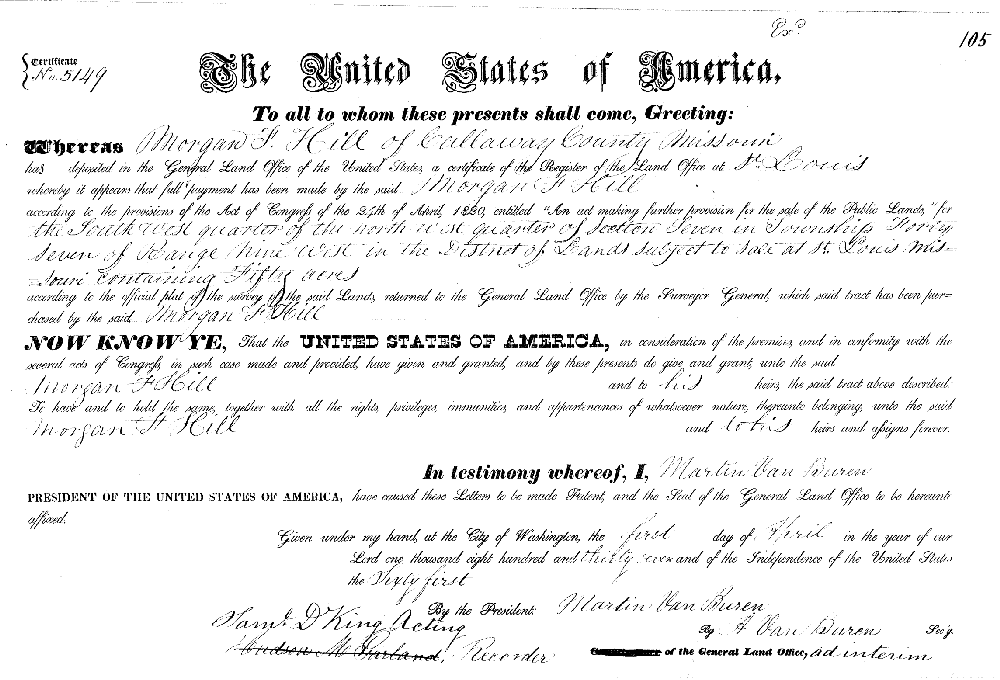 Exd.
105
Certificate
No. 5149
The United States of America,
To all to whom these presents shall come, Greeting:
Whereas Morgan F. Hill of Callaway County Missouri
has deposited in the General Land Office of the United States, a certificate of the Register of the Land Office at St. Louis
whereby it appears that full payment has been made by the said Morgan F Hill
according to the provisions of the Act of Congress of the 24th of April, 1820, entitled "An act making further provision for the sale of the Public Lands," for
the South West quarter of the north West quarter of Section Seven in Township Forty
Seven of Range Nine West in the District of Lands subject to sale at St. Louis Mis=
=souri containing Fifty acres
according to the official plat of the survey of the said Lands, returned to the General Land Office by the Surveyor General, which said tract has been pur=
chased by the said Morgan F. Hill
NOW KNOW YE, That the UNITED STATES OF AMERICA, in consideration of the premises, and in conformity with the
several acts of Congress, in such case made and provided, have given and granted, and by these presents do give and grant, unto the said
Morgan F Hill and to his heirs, the said tract above described:
To have and to hold the same, together with all the rights, privileges, immunities, and appurtenances of whatsoever nature, thereunto belonging, unto the said
Morgan F. Hill and to his heirs and assigns forever.
In testimony whereof, I, Martin Van Buren
PRESIDENT OF THE UNITED STATES OF AMERICA, have caused these Letters to be made Patent, and the Seal of the General Land Office to be hereunto
affixed.
Given under my hand, at the City of Washington, the first day of April in the year of our
Lord one thousand eight hundred and thirty seven and of the Independence of the United States
the Sixty first
By the President: Martin Van Buren
Saml. D King Acting By A Van Buren Sec'y.
Hudson M Garland, Recorder of the General Land Office, ad interim